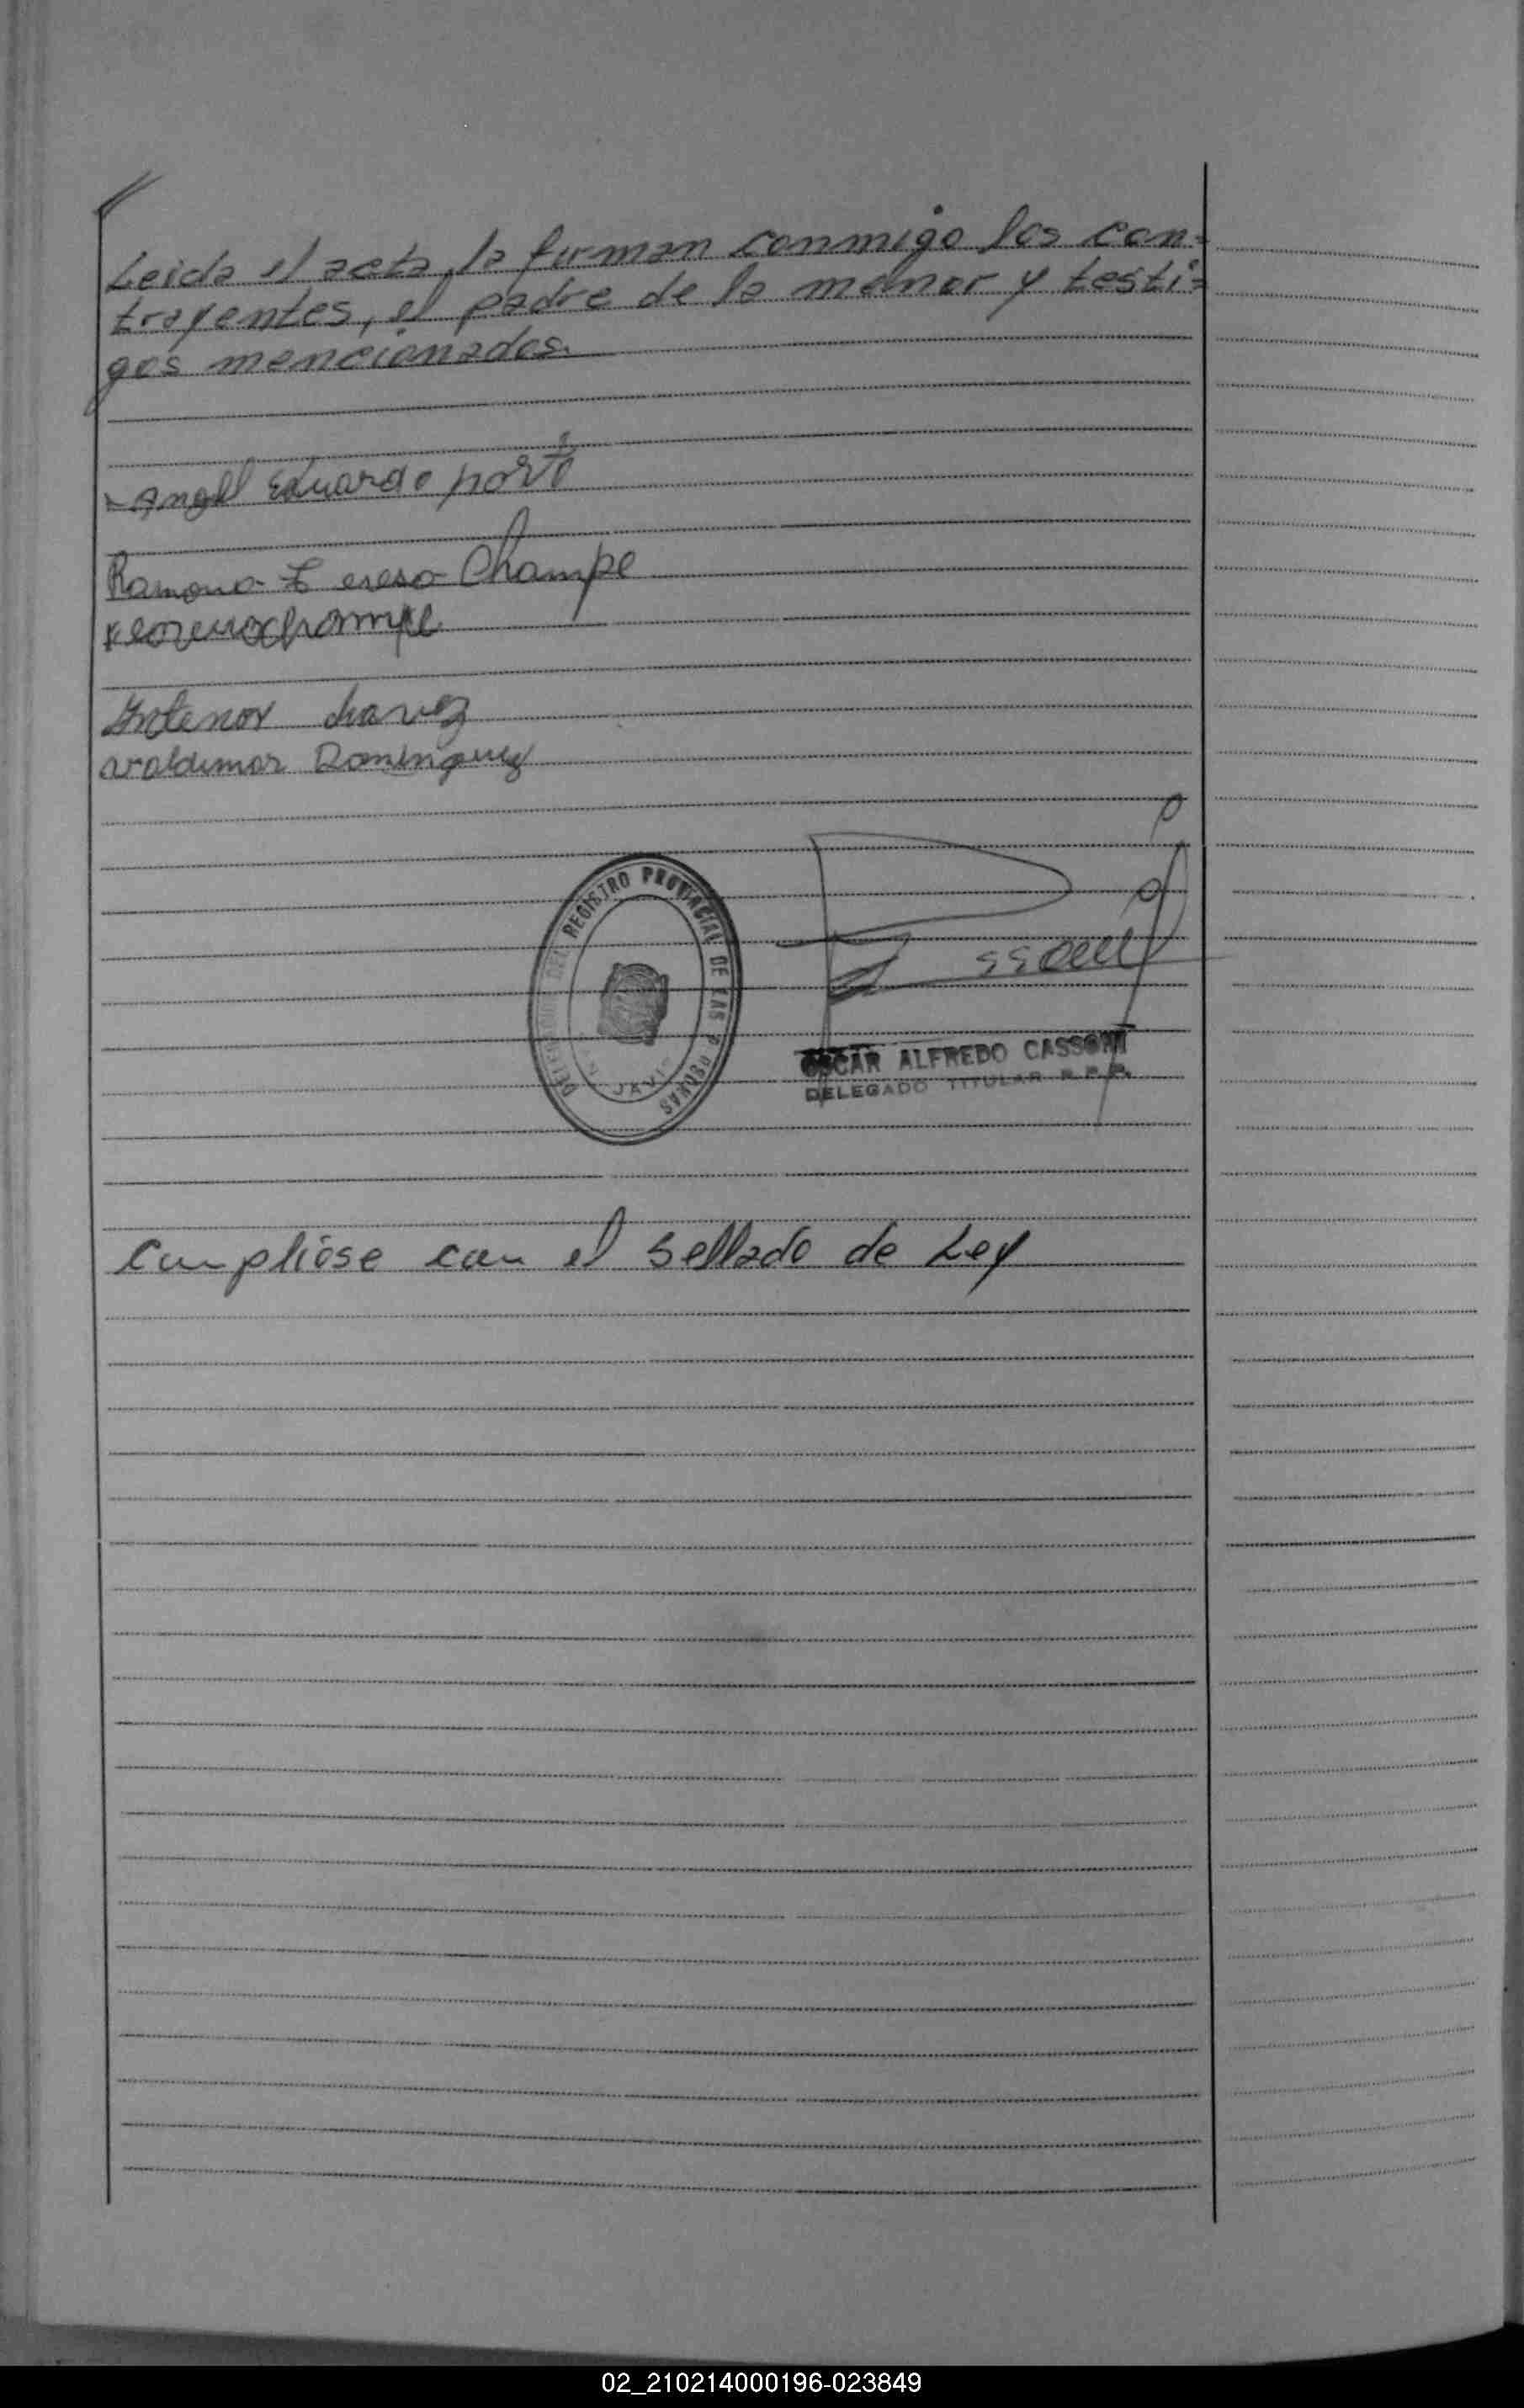 Leida el acta, la firman conmigo los con=
trayentes, el padre de la menor y testi=
gos mencionados.
Angel Eduardo porto
Ramona Teresa Champe
Antenor chavez
Valdimar Dominguez
REGISTRO PROVINCIAL DE LAS PERSONAS
JAVI
OSCAR ALFREDO CASSONI
DELEGADO TITULAR R.P.P.
Cumplióse con el sellado de Ley
02_210214000196-023849